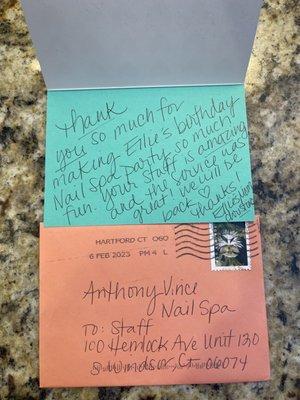 Thank
you so much for
making Ellie's birthday
Nail Spa party so much
fun. Your staff is amazing
and the service was
great. We will be
back ♡ Thanks,
HARTFORD CT 060
6 FEB 2023 PM 4 L
Anthony Vince
Nail Spa
To: Staff
100 Hemlock Ave Unit 130
S. Windsor Ct. 06074